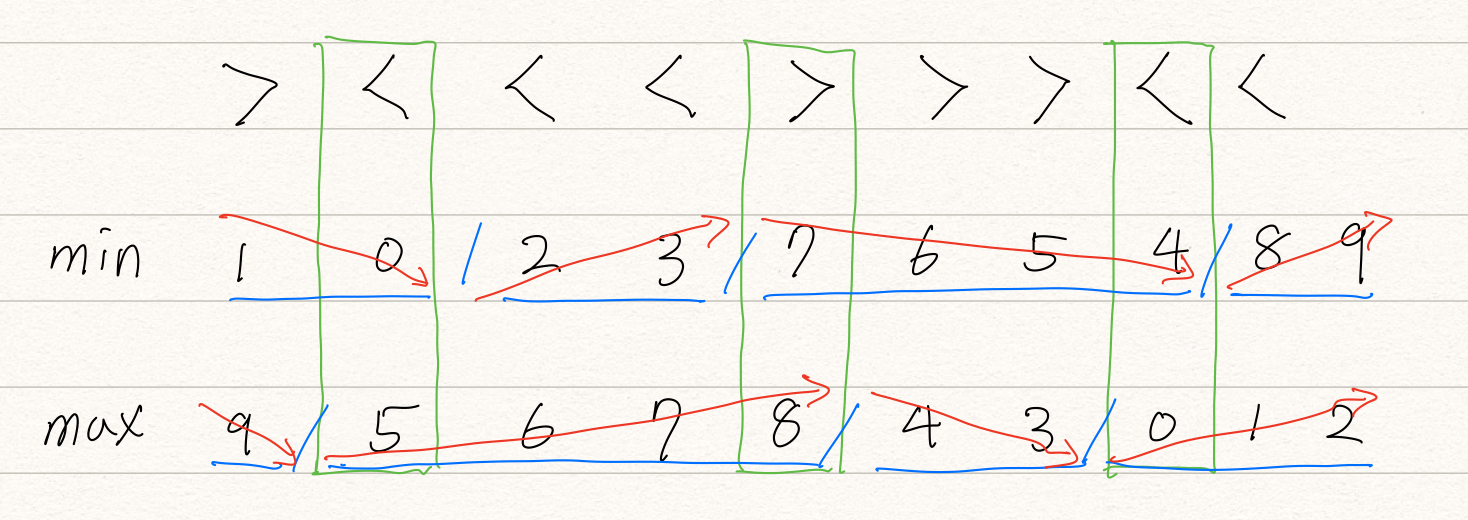 > < < < > > > < <
min 1 0 / 2 3 / 7 6 5 4 / 8 9
max 9 / 5 6 7 8 / 4 3 / 0 1 2